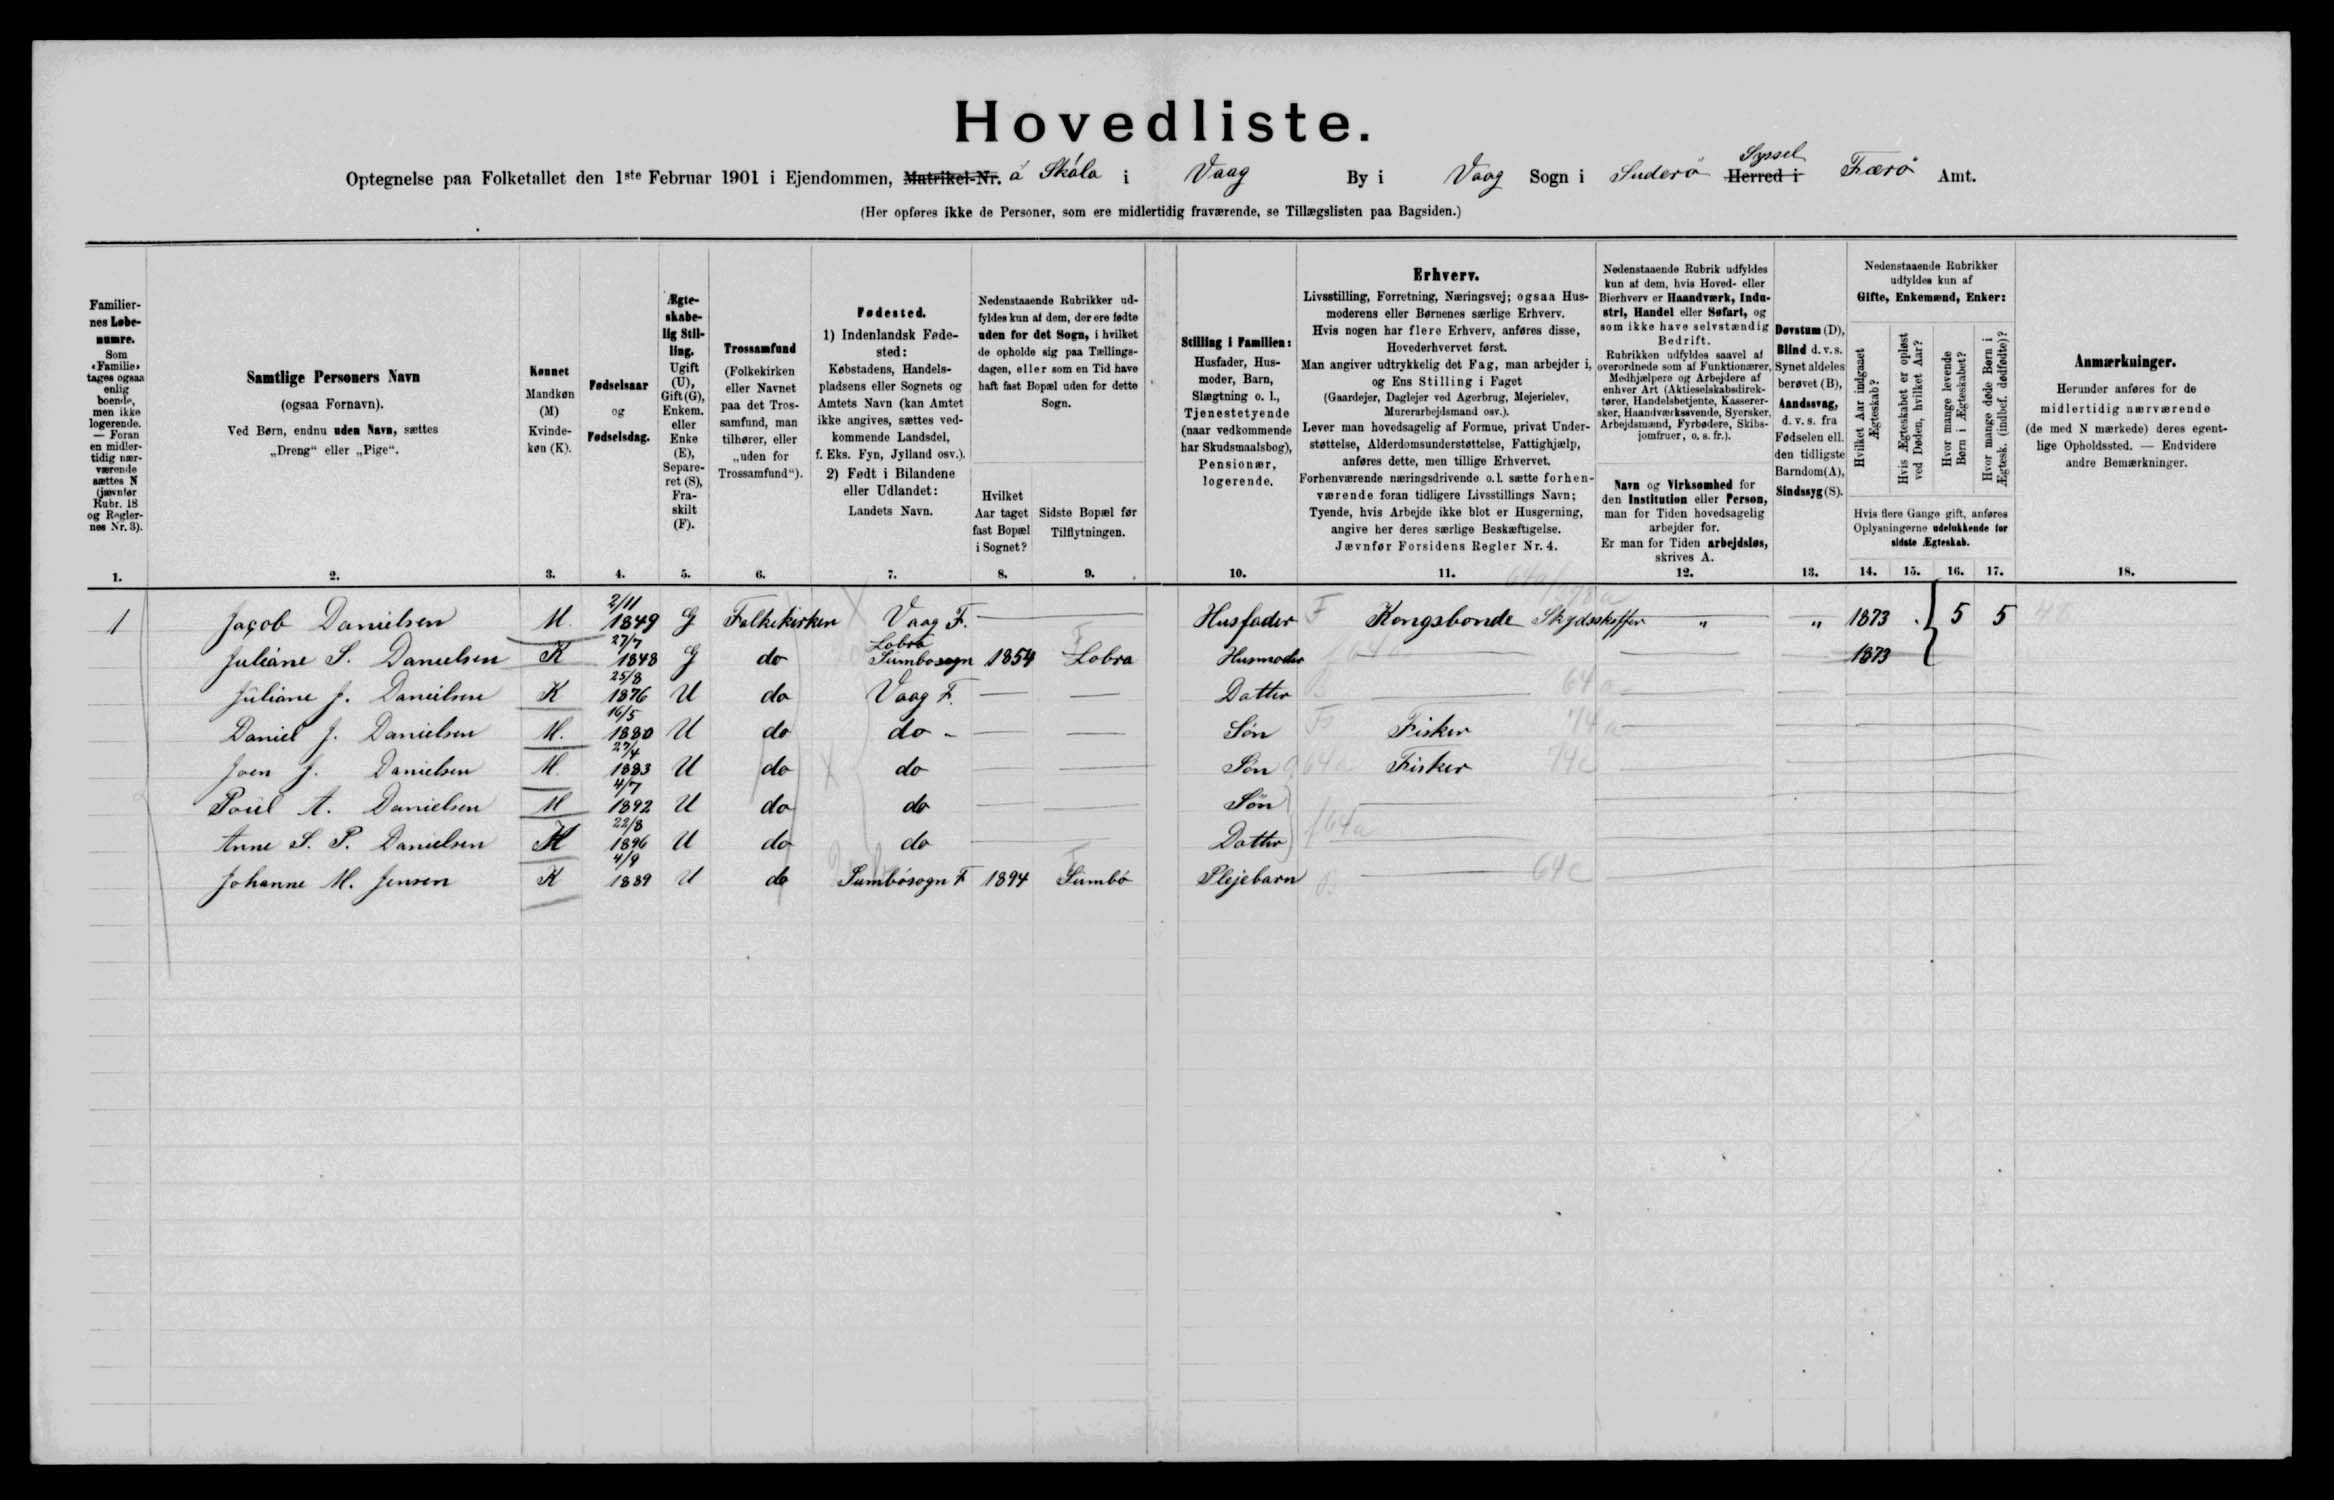 Hovedliste.
Optegnelse paa Folketallet den 1ste Februar 1901 i Ejendommen, Matrikel-Nr. á Skála i Vaag By i Vaag Sogn i Suderö Herred i Syssel Færö Amt.
(Her opføres ikke de Personer, som ere midlertidig fraværende, se Tillægslisten paa Bagsiden.)
Familier-
nes Løbe-
numre.
Som
«Familie»
tages ogsaa
enlig
boende,
men ikke
logerende.
— Foran
en midler-
tidig nær-
værende
sættes N
(jævnfør
Rubr. 18
og Regler-
nes Nr. 3).
1.
Samtlige Personers Navn
(ogsaa Fornavn).
Ved Børn, endnu uden Navn, sættes
„Dreng“ eller „Pige“.
2.
Kønnet
Mandkøn
(M)
Kvinde-
køn (K).
3.
Fødselsaar
og
Fødselsdag.
4.
Ægte-
skabe-
lig Stil-
ling.
Ugift
(U),
Gift (G),
Enkem.
eller
Enke
(E),
Separe-
ret (S),
Fra-
skilt
(F).
5.
Trossamfund
(Folkekirken
eller Navnet
paa det Tros-
samfund, man
tilhører, eller
„uden for
Trossamfund“).
6.
Fødested.
1) Indenlandsk Føde-
sted:
Købstadens, Handels-
pladsens eller Sognets og
Amtets Navn (kan Amtet
ikke angives, sættes ved-
kommende Landsdel,
f. Eks. Fyn, Jylland osv.).
2) Født i Bilandene
eller Udlandet:
Landets Navn.
7.
Nedenstaaende Rubrikker ud-
fyldes kun af dem, der ere fødte
uden for det Sogn, i hvilket
de opholde sig paa Tællings-
dagen, eller som en Tid have
haft fast Bopæl uden for dette
Sogn.
Hvilket
Aar taget
fast Bopæl
i Sognet?
8.
Sidste Bopæl før
Tilflytningen.
9.
Stilling i Familien:
Husfader, Hus-
moder, Barn,
Slægtning o. l.,
Tjenestetyende
(naar vedkommende
har Skudsmaalsbog),
Pensionær,
logerende.
10.
Erhverv.
Livsstilling, Forretning, Næringsvej; ogsaa Hus-
moderens eller Børnenes særlige Erhverv.
Hvis nogen har flere Erhverv, anføres disse,
Hovederhvervet først.
Man angiver udtrykkelig det Fag, man arbejder i,
og Ens Stilling i Faget
(Gaardejer, Daglejer ved Agerbrug, Mejerielev,
Murerarbejdsmand osv.).
Lever man hovedsagelig af Formue, privat Under-
støttelse, Alderdomsunderstøttelse, Fattighjælp,
anføres dette, men tillige Erhvervet.
Forhenværende næringsdrivende o. l. sætte forhen-
værende foran tidligere Livsstillings Navn;
Tyende, hvis Arbejde ikke blot er Husgerning,
angive her deres særlige Beskæftigelse.
Jævnfør Forsidens Regler Nr. 4.
11.
Nedenstaaende Rubrik udfyldes
kun af dem, hvis Hoved- eller
Bierhverv er Haandværk, Indu-
stri, Handel eller Søfart, og
som ikke have selvstændig
Bedrift.
Rubrikken udfyldes saavel af
overordnede som af Funktionærer,
Medhjælpere og Arbejdere af
enhver Art (Aktieselskabsdirek-
tører, Handelsbetjente, Kasserer-
sker, Haandværkssvende, Syersker,
Arbejdsmænd, Fyrbødere, Skibs-
jomfruer, o. s. fr.).
Navn og Virksomhed for
den Institution eller Person,
man for Tiden hovedsagelig
arbejder for.
Er man for Tiden arbejdsløs,
skrives A.
12.
Døvstum (D),
Blind d. v. s.
Synet aldeles
berøvet (B),
Aandssvag,
d. v. s. fra
Fødselen ell.
den tidligste
Barndom (A),
Sindssyg (S).
13.
Nedenstaaende Rubrikker
udfyldes kun af
Gifte, Enkemænd, Enker:
Hvilket Aar indgaaet
Ægteskab?
Hvis Ægteskabet er opløst
ved Døden, hvilket Aar?
Hvor mange levende
Børn i Ægteskabet?
Hvor mange døde Børn i
Ægtesk. (indbef. dødfødte)?
Hvis flere Gange gift, anføres
Oplysningerne udelukkende for
sidste Ægteskab.
14. 15. 16. 17.
Anmærkninger.
Herunder anføres for de
midlertidig nærværende
(de med N mærkede) deres egent-
lige Opholdssted. — Endvidere
andre Bemærkninger.
18.
1 Jacob Danielsen M. 2/11 1849 G Folkekirken Vaag F. — Husfader F Kongsbonde Skydsskaffer „ „ 1873 . 5 5
Juliane S. Danielsen K 27/7 1848 G do Lobra Sumbosogn 1854 Lobra Husmoder — 1873
Juliane J. Danielsen K 25/8 1876 U do Vaag F. — — Datter — 64a
Daniel J. Danielsen M. 16/5 1880 U do do — — Søn Fisker 74a
Joen J. Danielsen M. 27/4 1883 U do do — — Søn 64a Fisker 74c
Poul A. Danielsen M 4/7 1892 U do do — — Søn
Anne S. P. Danielsen K 22/8 1896 U do do — — Datter 64a
Johanne M. Jensen K 4/9 1889 U do Sumbösogn F 1894 Sumbö Plejebarn — 64c